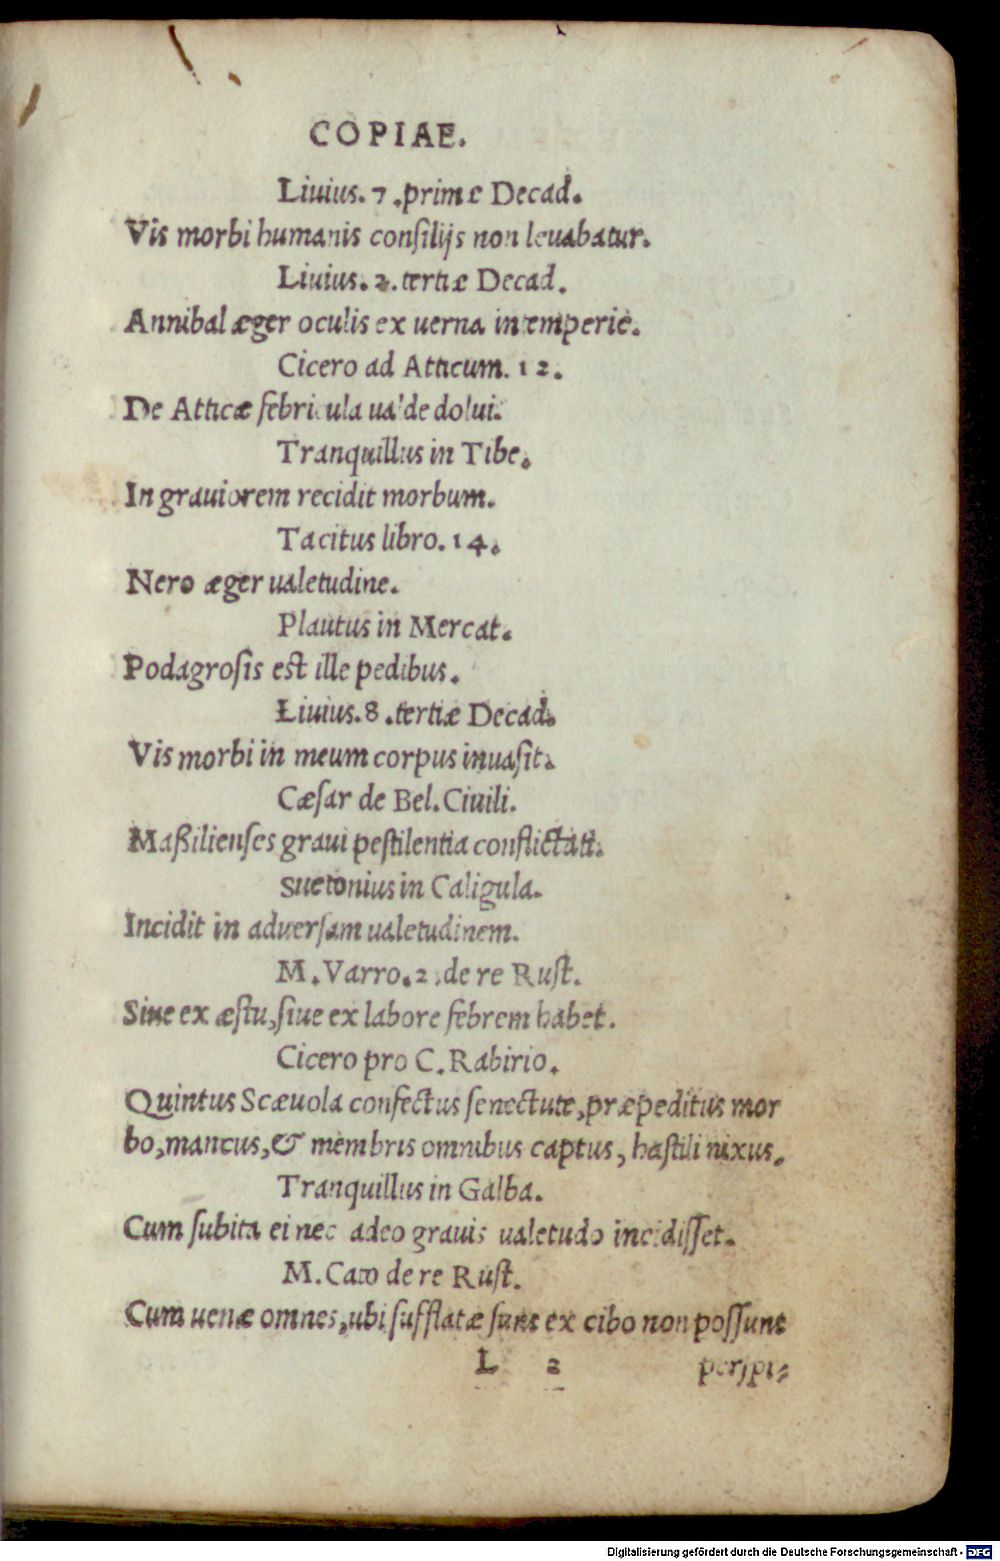 COPIAE.
Liuius. 7. primæ Decad.
Vis morbi humanis consilijs non leuabatur.
Liuius. 2. tertiæ Decad.
Annibal æger oculis ex uerna intemperie.
Cicero ad Atticum. 12.
De Atticæ febricula ualde dolui.
Tranquillus in Tibe.
In grauiorem recidit morbum.
Tacitus libro. 14.
Nero æger ualetudine.
Plautus in Mercat.
Podagrosis est ille pedibus.
Liuius. 8. tertiæ Decad.
Vis morbi in meum corpus inuasit.
Cæsar de Bel. Ciuili.
Maßilienses graui pestilentia conflictati.
Suetonius in Caligula.
Incidit in aduersam ualetudinem.
M. Varro. 2. de re Rust.
Siue ex æstu, siue ex labore febrem habet.
Cicero pro C. Rabirio.
Quintus Scæuola confectus senectute, præpeditus mor
bo, mancus, & membris omnibus captus, hastili nixus.
Tranquillus in Galba.
Cum subita ei nec adeo grauis ualetudo incidisset.
M. Cato de re Rust.
Cum uenæ omnes, ubi sufflatæ sunt ex cibo non possunt
L 2 perspi-
Digitalisierung gefördert durch die Deutsche Forschungsgemeinschaft - DFG